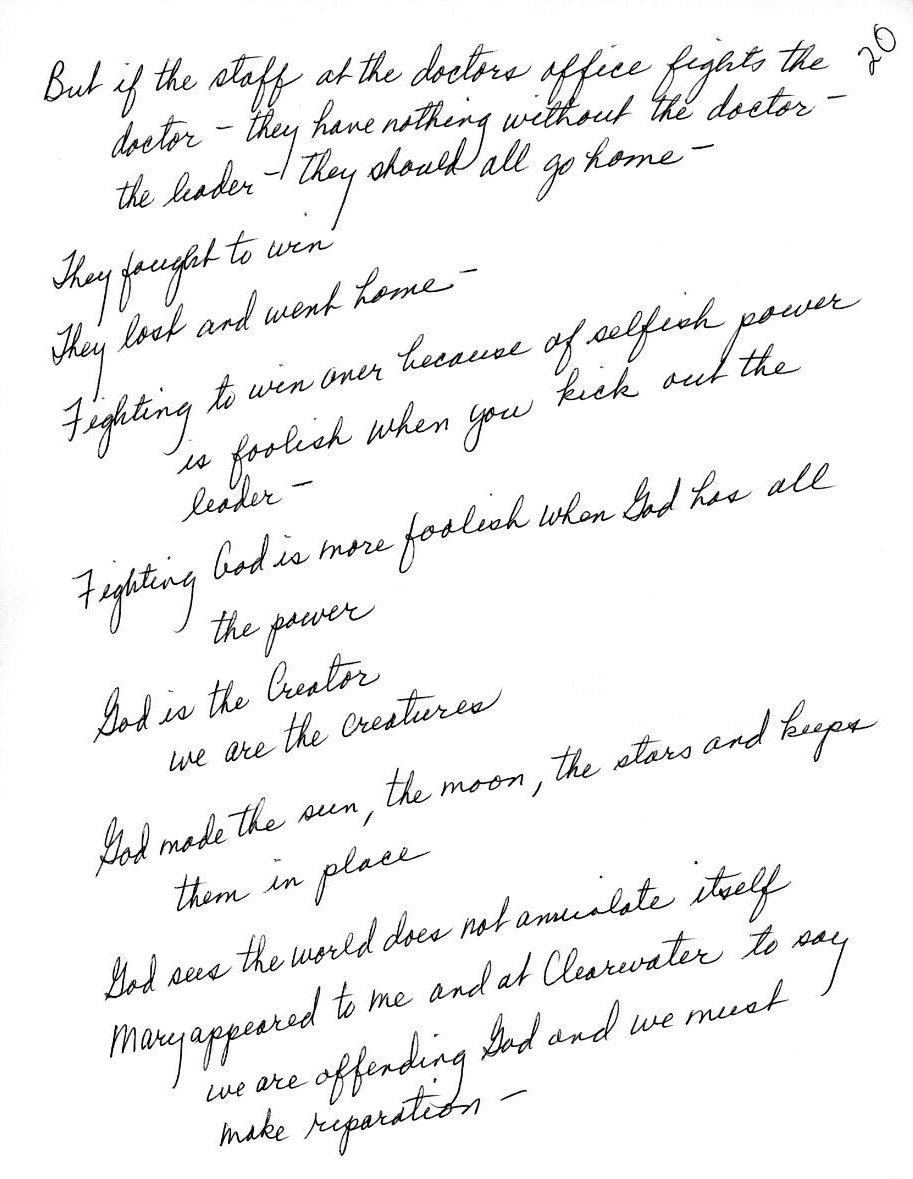 20
But if the staff at the doctors office fights the
doctor – they have nothing without the doctor –
the leader – they should all go home –
They fought to win
They lost and went home –
Fighting to win over because of selfish power
is foolish when you kick out the
leader –
Fighting God is more foolish when God has all
the power
God is the Creator
we are the creatures
God made the sun, the moon, the stars and keeps
them in place
God sees the world does not annialate itself
Mary appeared to me and at Clearwater to say
we are offending God and we must
make reparation –